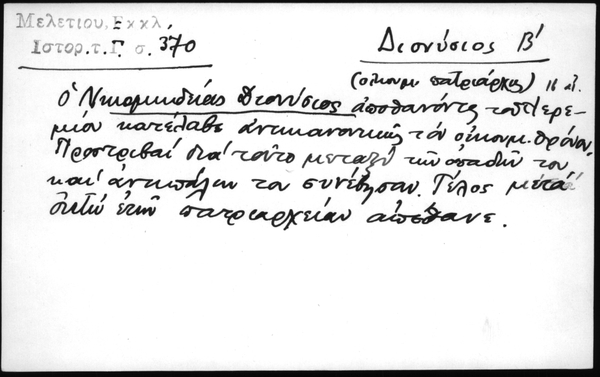 Μελετίου, Εκκλ.
Ιστορ. τ. Γ. σ. 370
Διονύσιος Β'
(οἰκουμ. πατριάρχης) 16 αἰ.
Ὁ Νικομηδείας Διονύσιος ἀποθανόντος τοῦ Ἱερε-
μίου κατέλαβε ἀντικανονικῶς τόν οἰκουμ. θρόνον.
Προστριβαί διά τοῦτο μεταξύ τῶν ὀπαδῶν του
καί ἀντιπάλων του συνέβησαν. Τέλος μετά
ἐτῶν πατριαρχείαν ἀπέθανε.